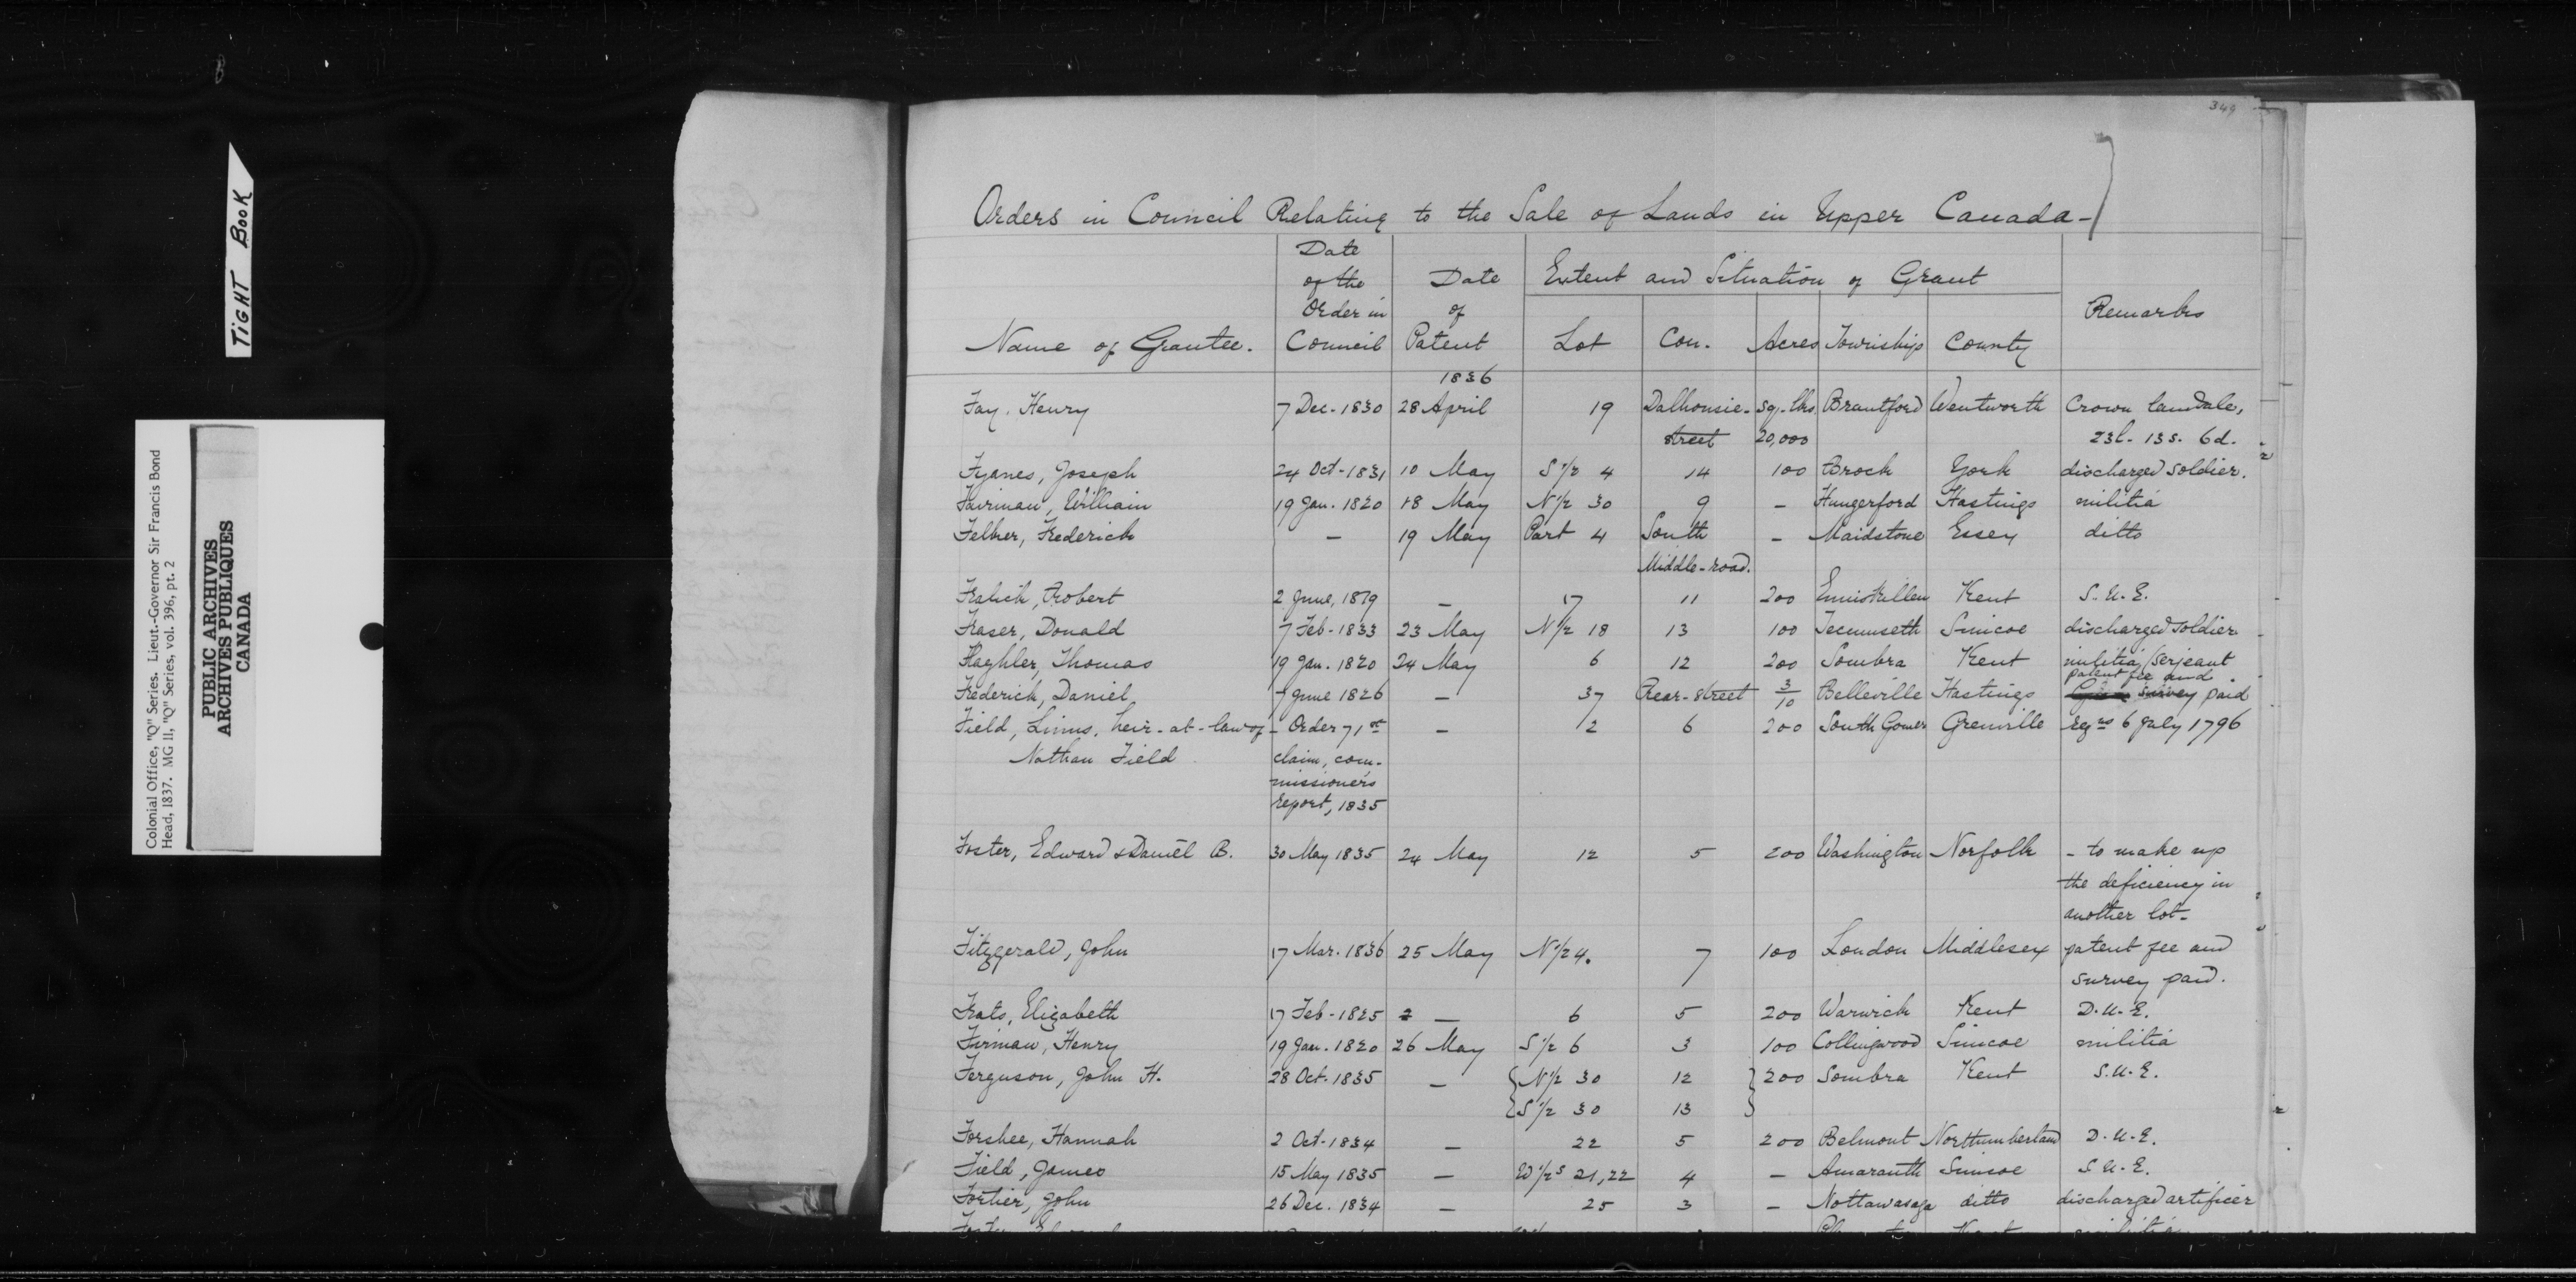 349
TIGHT BOOK
Colonial Office, "Q" Series. Lieut.-Governor Sir Francis Bond
Head, 1837. MG 11, "Q" Series, vol. 396, pt. 2
PUBLIC ARCHIVES
ARCHIVES PUBLIQUES
CANADA
Orders in Council Relating to the Sale of Lands in Upper Canada-
Name of Grantee. Date of the Order in Council Date of Patent Extent and Situation of Grant Remarks
Lot Con. Acres Township County
1836
Fay. Henry 7 Dec. 1830 28 April 19 Dalhousie- Sq. lks. Brantford Wentworth Crown landsale,
street 20,000 23l. 13s. 6d.
Fyanes, Joseph 24 Oct-1831 10 May S 1/2 4 14 100 Brock York discharged soldier.
Fairman, William 19 Jan. 1820 18 May N 1/2 30 9 - Hungerford Hastings militia
Felker, Frederick - 19 May Part 4 South - Maidstone Essex ditto
Middle-road.
Fralick, Robert 2 June, 1819 - 17 11 200 Enniskillen Kent S.U.E.
Fraser, Donald 7 Feb-1833 23 May N 1/2 18 13 100 Tecumseth Simcoe discharged soldier
Thomas 19 Jan. 1820 24 May 6 12 200 Sombra Kent militia (serjeant
patent fee and
Frederick, Daniel June 1826 - 37 Rear-street 3/10 Belleville Hastings survey paid
Field, Linus, heir-at-law of - Order 71st - 12 6 200 South Gower Grenville 6 July 1796
Nathan Field claim, com-
missioners
report, 1835
Foster, Edward & Daniel B. 30 May 1835 24 May 12 5 200 Washington Norfolk - to make up
the deficiency in
another lot-
Fitzgerald, John 17 Mar. 1836 25 May N 1/2 4. 7 100 London Middlesex patent fee and
survey paid.
Frats, Elizabeth 17 Feb-1825 2 - 6 5 200 Warwick Kent D.U.E.
Firman, Henry 19 Jan. 1820 26 May S 1/2 6 3 100 Collingwood Simcoe militia
Ferguson, John H. 28 Oct. 1835 - { N 1/2 30 12 } 200 Sombra Kent S.U.E.
{ S 1/2 30 13 }
Forshee, Hannah 2 Oct-1834 - 22 5 200 Belmont Northumberland D.U.E.
Field, James 15 May 1835 - W 1/2s 21,22 4 - Amaranth Simcoe S.U.E.
Fortier, John 26 Dec. 1834 - 25 3 - Nottawasaga ditto discharged artificer